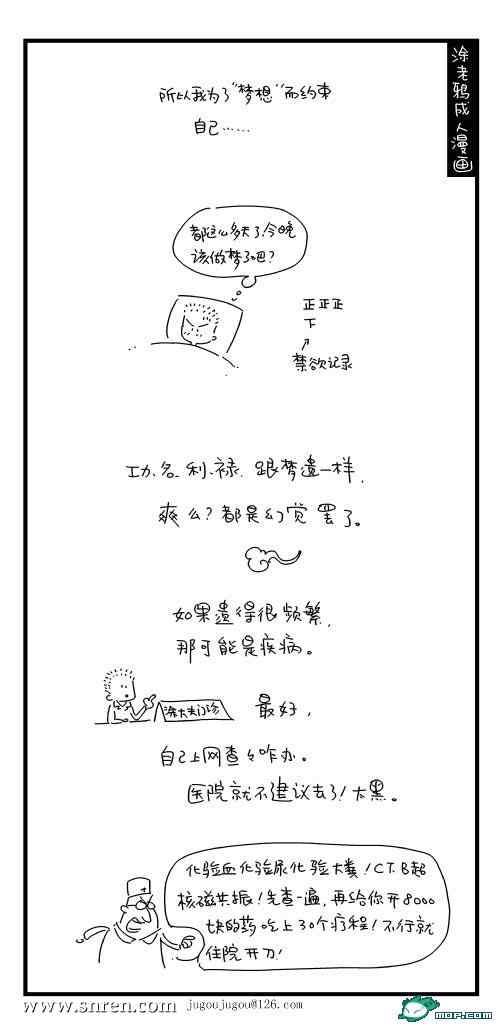 涂老鸦成人漫画
所以我为了“梦想”而约束
自己……
都这么多天了.今晚
该做梦了吧？
正正正
下
禁欲记录
功、名、利、禄、跟梦遗一样，
爽么？都是幻觉罢了。
如果遗得很频繁，
那可能是疾病。
涂大夫门诊
最好，
自己上网查々咋办。
医院就不建议去了！太黑。
化验血化验尿化验大粪！C.T.B超
核磁共振！先查一遍，再给你开8000
块的药吃上30个疗程！不行就
住院开刀！
www.snren.com jugoujugou@126.com
MOP.COM